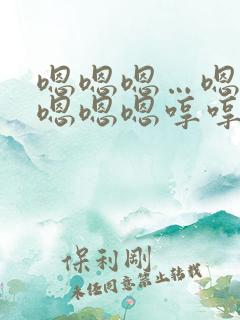 嗯嗯嗯…嗯
嗯嗯嗯哼哼
保利剛
未经同意禁止转载